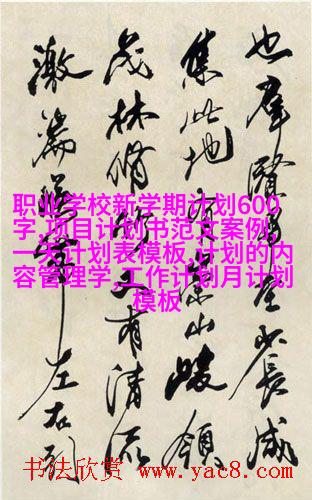 也群賢畢至少長咸
集此地有崇山峻領
茂林脩竹又有清流
激湍暎帶左右引
职业学校新学期计划600
字,项目计划书范文案例,
一天计划表模板,计划的内
容管理学,工作计划月计划
模板
书法欣赏 www.yac8.com